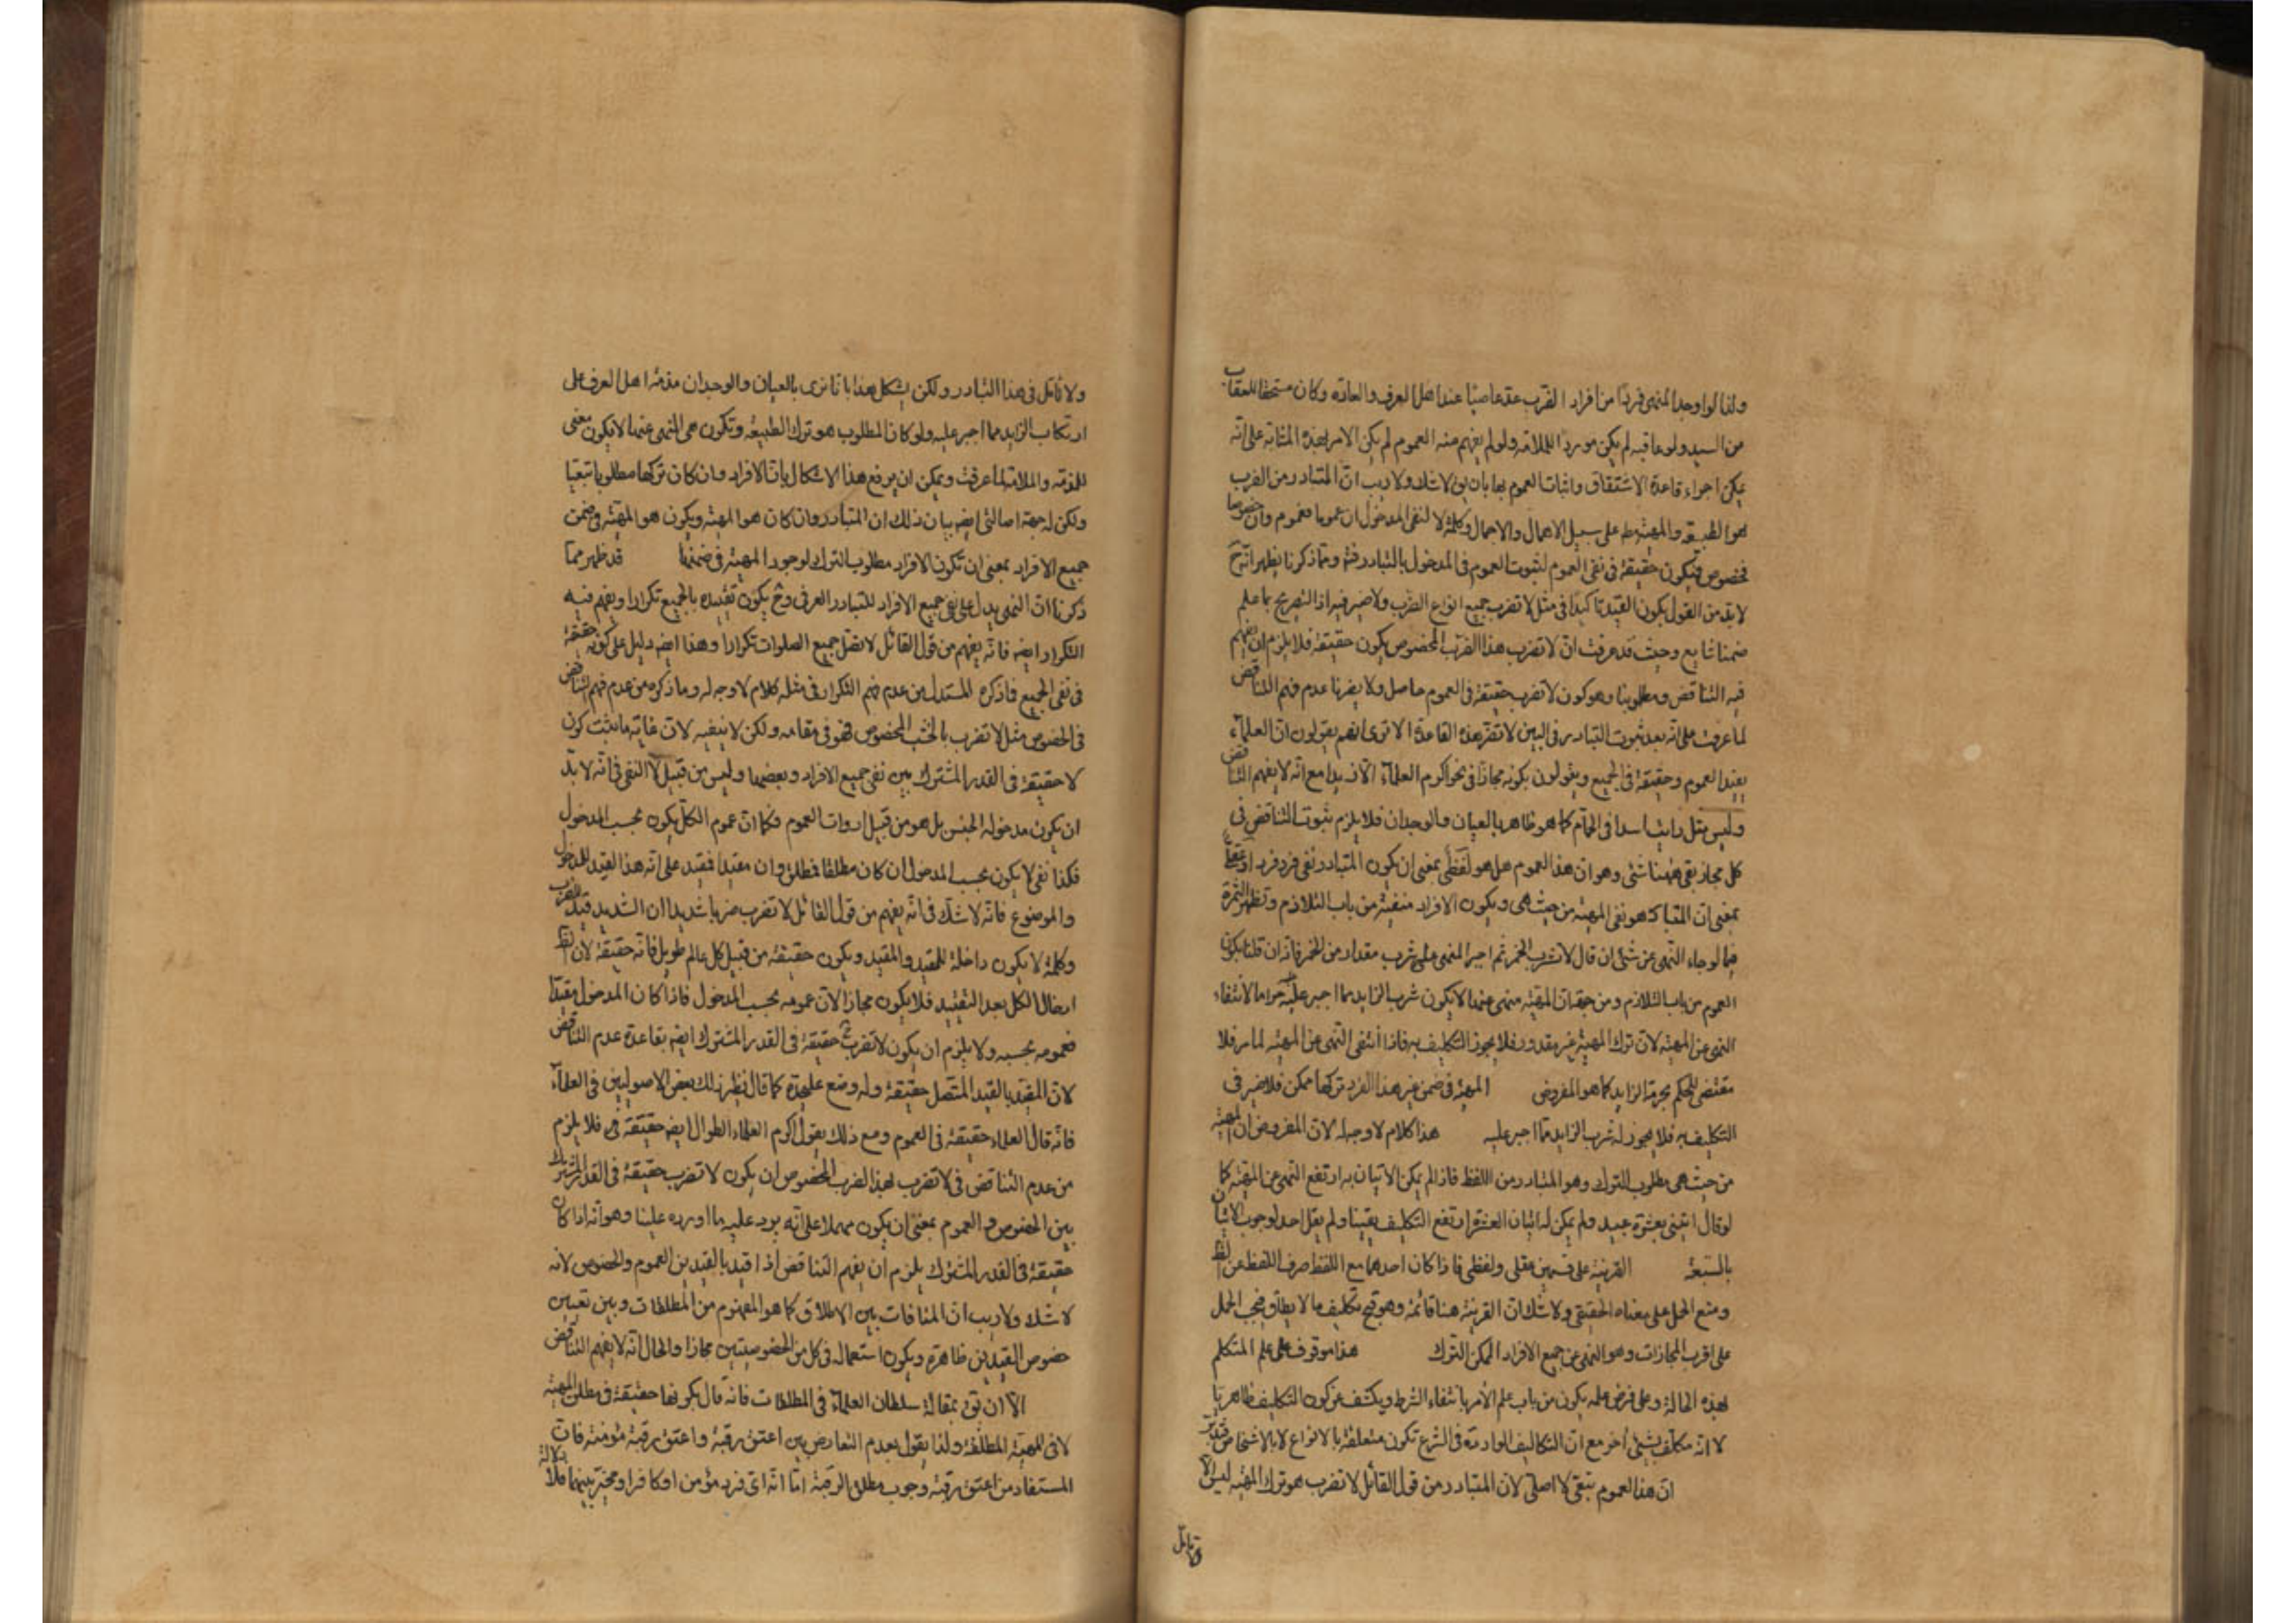 ولذا لو اوجد المنهى فردًا من افراد الضرب عد عاصيًا عند اهل العرف والعادة وكان مستحقا للعقاب
من السيد ولو عاقبه لم يكن موردا للملامة ولو لم يفهم منه العموم لم يكن الامر بهذه المثابة على انه
يمكن اجراء قاعدة الاشتقاق واثبات العموم بها بان يق لا شك ولا ريب ان المتبادر من الضرب
هو الطبيعة والمهية على سبيل الاهمال والاجمال وكلمة لا لنفى المدخول ان عموما فعموم وان خصوصا
فخصوص فيكون حقيقة فى نفى العموم لثبوت العموم فى المدخول بالتبادر ومما ذكرنا يظهر انه ح
لا بد من القول بكون القيد تاكيدا فى مثل لا تضرب جميع انواع الضرب ولا ضير فيه اذ التصريح بما علم
ضمنا شايع وحيث قد عرفت ان لا تضرب هذا الضرب المخصوص يكون حقيقة فلا يلزم ان يفهم
فيه التناقض ومطلوبنا وهو كون لا تضرب حقيقة فى العموم حاصل ولا يضرنا عدم فهم التناقض
لما عرفت على انه بعد ثبوت التبادر فى البين لا تضر هذه القاعدة الا ترى انهم يقولون ان العلماء
يفيد العموم وحقيقة فى الجميع ويقولون بكونه مجازًا فى نحو اكرم العلماء الا زيدا مع انه لا يفهم التناقض
وليس مثل رايت اسدا فى الحمام كما هو ظاهر بالعيان والوجدان فلا يلزم ثبوت التناقض فى
كل مجاز بقى ههنا شئ وهو ان هذا العموم هل هو لفظى بمعنى ان يكون المتبادر نفى فرد فرد او عقلى
بمعنى ان المتبادر هو نفى المهية من حيث هى ويكون الافراد منفية من باب التلازم وتظهر الثمرة
فيما لو جاء النهى عن شئ ان قال لا تشرب الخمر ثم اجبر المنهى على شرب مقدار من الخمر فاذا ان قلنا بكون
العموم من باب التلازم ومن جهة ان المهية منهى عنها لا يكون شرب الزايد مما اجبر عليه حراما لانتفاء
النهى عن المهية لان ترك المهية غير مقدور فلا يجوز التكليف به فاذا انتفى النهى عن المهية لما مر فلا
مقتضى للحكم بحرمة الزايد كما هو المفروض المهية فى ضمن غير هذا الفرد تركها ممكن فلا ضير فى
التكليف به فلا يجوز له شرب الزايد مما اجبر عليه هذا كلام لا وجه له لان المفروض ان المهية
من حيث هى مطلوب للترك وهو المتبادر من اللفظ فاذا لم يمكن الاتيان به ارتفع النهى عن المهية كما
لو قال ائتنى بعشرة عبيد ولم يمكن له اتيان العشرة ارتفع التكليف يقينا ولم يقل احد لوجوب الاتيان
بالتسعة القرينة على قسمين عقلى ولفظى فاذا كان احدهما مع اللفظ صرف اللفظ عن
ومنع الحمل على معناه الحقيقى ولا شك ان القرينة هنا قائمة وهو قبح تكليف ما لا يطاق فيجب الحمل
على اقرب المجازات وهو النهى عن جميع الافراد الممكن الترك هذا موقوف على علم المتكلم
بهذه الحالة وعلى فرض علمه يكون من باب علم الأمر بانتفاء الشرط ويكشف عن كون التكليف ظاهريا
لا انه مكلف بشئ اخر مع ان التكاليف الواردة فى الشرع تكون متعلقة بالانواع لا بالاشخاص فتدبر
ان هذا العموم تبعى لا اصلى لان المتبادر من قول القائل لا تضرب هو ترك المهية ليس الا
ولا تأمل
ولا تامل فى هذا التبادر ولكن يشكل هذا بانا نرى بالعيان والوجدان مذمة اهل العرف على
ارتكاب الزايد مما اجبر عليه ولو كان المطلوب هو ترك الطبيعة وتكون هى المنهى عنها لا يكون معنى
للمذمة والملامة لما عرفت ويمكن ان يرفع هذا الاشكال بان الافراد وان كان تركها مطلوبا تبعيا
ولكن له جهة اصالتى ايض بيان ذلك ان المتبادر وان كان هو المهية ويكون هو المهية فى ضمن
جميع الافراد بمعنى ان تكون الافراد مطلوب الترك لوجود المهية فى ضمنها قد ظهر مما
ذكرنا ان النهى يدل على نفى جميع الافراد للتبادر العرفى وح يكون تقييده بالجميع تكرارا ويفهم فيه
التكرار ايض فانه يفهم من قول القائل لا تصل جميع الصلوات تكرارا وهذا ايض دليل على كونه حقيقة
فى نفى الجميع فما ذكره المستدل من عدم فهم التكرار فى مثله كلام لا وجه له وما ذكره من عدم فهم التناقض
فى الخصوص مثل لا تضرب بالخشب المخصوص فهو فى مقامه ولكن لا ينفعه لان غاية ما يثبت كون
لا حقيقة فى القدر المشترك بين نفى جميع الافراد وبعضها وليس من قبيل لا النفى فى انه لا بد
ان يكون مدخوله الجنس بل هو من قبيل ادوات العموم فكما ان عموم الكل يكون بحسب المدخول
فكذا نفى لا يكون بحسب المدخول ان كان مطلقا فمطلق وان مقيدا فمقيد على انه هذا القيد للمدخول
والموضوع فانه لا شك فى انه يفهم من قول القائل لا تضرب ضربا شديدا ان الشديد قيد للضرب
وكلمة لا يكون داخلة للمقيد والمقيد ويكون حقيقة من قبيل كل عالم طويل فانه حقيقة لان
ادخال الكل بعد التقييد فلا يكون مجازا لان عمومه بحسب المدخول فاذا كان المدخول مقيدا
فعمومه بحسبه ولا يلزم ان يكون لا تضرب ح حقيقة فى القدر المشترك ايض بقاعدة عدم التناقض
لان المقيد بالقيد المتصل حقيقة وله وضع عليحدة كما قال نظير ذلك بعض الاصوليين فى العلماء
فانه قال العلماء حقيقة فى العموم ومع ذلك يقول اكرم العلماء الطوال ايض حقيقة فى فلا يلزم
من عدم التناقض فى لا تضرب لهذا الضرب المخصوص ان يكون لا تضرب حقيقة فى القدر المشترك
بين الخصوص والعموم بمعنى ان يكون مهملا على انه يرد عليه ما اورده علينا وهو انه اذا كان
حقيقة فى القدر المشترك يلزم ان يفهم التناقض اذا قيد بالقيدين العموم والخصوص لانه
لا شك ولا ريب ان المنافات بين الاطلاق كما هو المفهوم من المطلقات وبين تعيين
خصوص القيدين ظاهرة ويكون استعماله فى كل من الخصوصيتين مجازا والحال انه لا يفهم التناقض
الا ان تق بمقالة سلطان العلماء فى المطلقات فانه قال بكونها حقيقة فى مطلق المهية
لا فى المهية المطلقة ولذا يقول بعدم التعارض بين اعتق رقبة واعتق رقبة مؤمنة فان
المستفاد من اعتق رقبة وجوب مطلق الرقبة اما انه اى فرد مؤمن او كافرا ومخير بينهما فلا دلالة